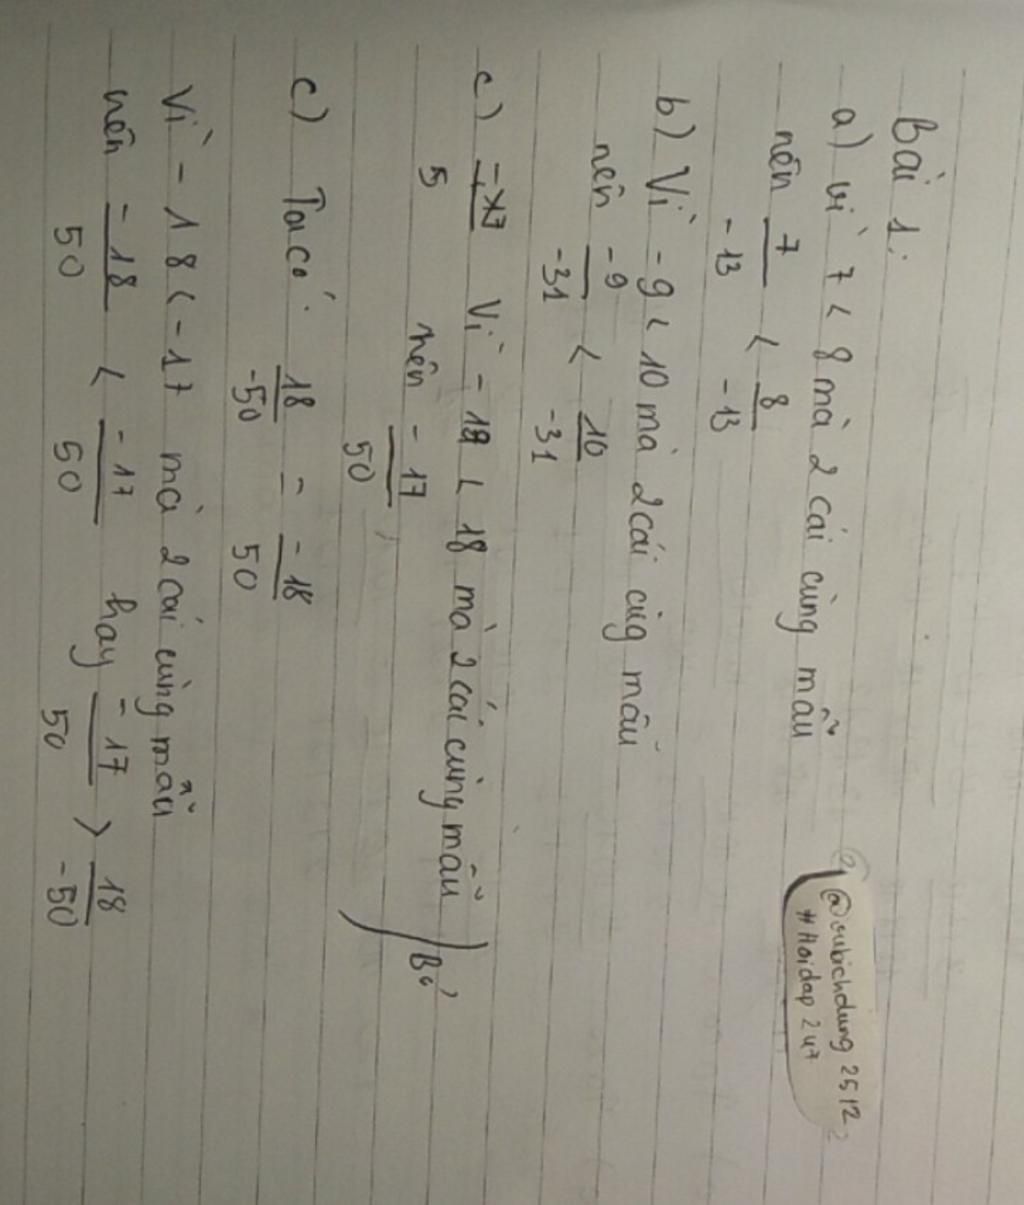 Bài 1:
a) vì 7 < 8 mà 2 cái cùng mẫu
nên 7/-13 < 8/-13
b) Vì -9 < 10 mà 2 cái cùg mẫu
nên -9/-31 < 10/-31
c) Vì - 18 < 18 mà 2 cái cùng mẫu
5 nên -17/50 Bỏ
c) Ta có: 18/-50 = -18/50
Vì -18 < -17 mà 2 cái cùng mẫu
nên -18/50 < -17/50 hay -17/50 > 18/-50
2512
#Hoidap247